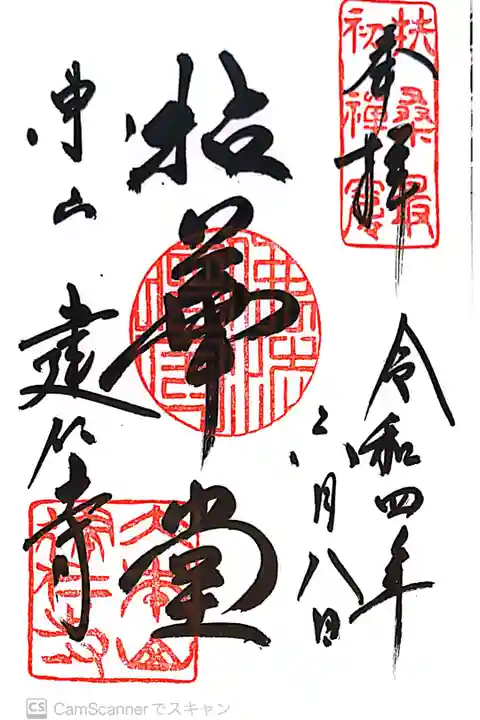 奉拝
扶桑最
初禅窟
令和四年
六月八日
拈華堂
東山
建仁寺
CS CamScannerでスキャン